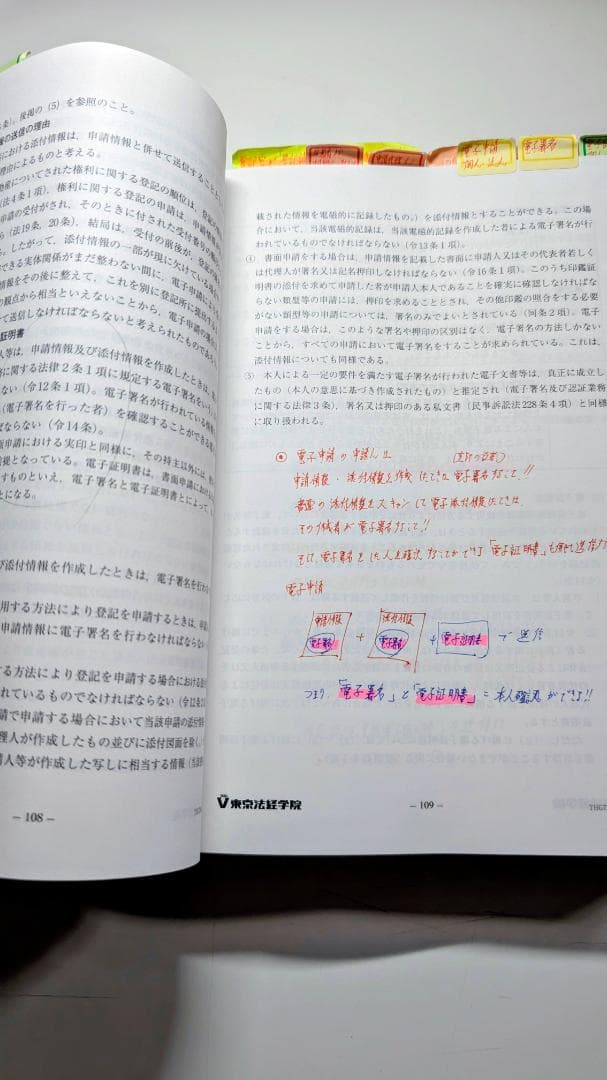 条)，後掲の (5) を参照のこと。
報の送信の理由
における添付情報は，申請情報と併せて送信すること
理由によるものと考える。
動産についてされた権利に関する登記の順位は，登記の
法4条1項)，権利に関する登記の申請は，申請情報
申請の受付がされ，そのときに付された受付番号の順
ら (法19条，20条)，結局は，受付の前後が，登記の
。したがって，添付情報の一部が現に欠けている
できる実体関係がまだ整わない間に，電子申請によ
情報をその後に整えて，これを別に登記所に提出する
の観点から相当といえないことから，電子申請の場合
て送信しなければならないと考えられたものである
証明書
人等は，申請情報及び添付情報を作成したときは，
名に関する法律2条1項に規定する電子署名をい
ない (令12条1項)。電子署名が行われている情報
(電子署名を行った者) を確認することができる
ばならない (令14条)。
面申請における実印と同様に，その持主以外には，
前提となっている。電子証明書は，書面申請における
すものといえ，電子署名と電子証明書とによって，
とになる。
び添付情報を作成したときは，電子署名を行わ
用する方法により登記を申請するときは，
申請情報に電子署名を行わなければならない
する方法により登記を申請する場合における
れているものでなければならない (令12条2
請で申請する場合において当該申請の添付情報
理人が作成したもの並びに添付図面を除く。
請人等が作成した写しに相当する情報
― 108 ―
電子申請
電子署名
載された情報を電磁的に記録したもの。) を添付情報とすることができる。この場
合において，当該電磁的記録は，当該電磁的記録を作成した者による電子署名が行
われているものでなければならない (令13条1項)。
④ 書面申請をする場合は，申請情報を記載した書面に申請人又はその代表者若しく
は代理人が署名又は記名押印しなければならない (令16条1項)。このうち印鑑証
明書の添付を求めて申請した者が申請人本人であることを確実に確認しなければな
らない類型等の申請には，押印を求めることとされ，その他印鑑の照合をする必要
がない類型等の申請については，署名のみでよいとされている (同条2項)。電子
申請をする場合は，このような署名や押印の区別はなく，電子署名の方法しかない
ことから，すべての申請において電子署名をすることが求められている。これは，
添付情報についても同様である。
⑤ 本人による一定の要件を満たす電子署名が行われた電子文書等は，真正に成立し
たもの (本人の意思に基づき作成されたもの) と推定され (電子署名及び認証業務
に関する法律3条)，署名又は押印のある私文書 (民事訴訟法228条4項) と同様
に取り扱われる。
電子申請の申請人は
申請情報・添付情報を作成したとき電子署名すること!!
書面の添付情報をスキャンして電子添付情報としたときは、
その作成者が電子署名すること!!
そして電子署名をした人を確認することができる「電子証明書」を併せて送信
電子申請
申請情報 電子署名 + 添付情報 電子署名 + 電子証明書 で 送信
つまり「電子署名」と「電子証明書」= 本人確認ができる!!
V東京法経学院
― 109 ―
THGT